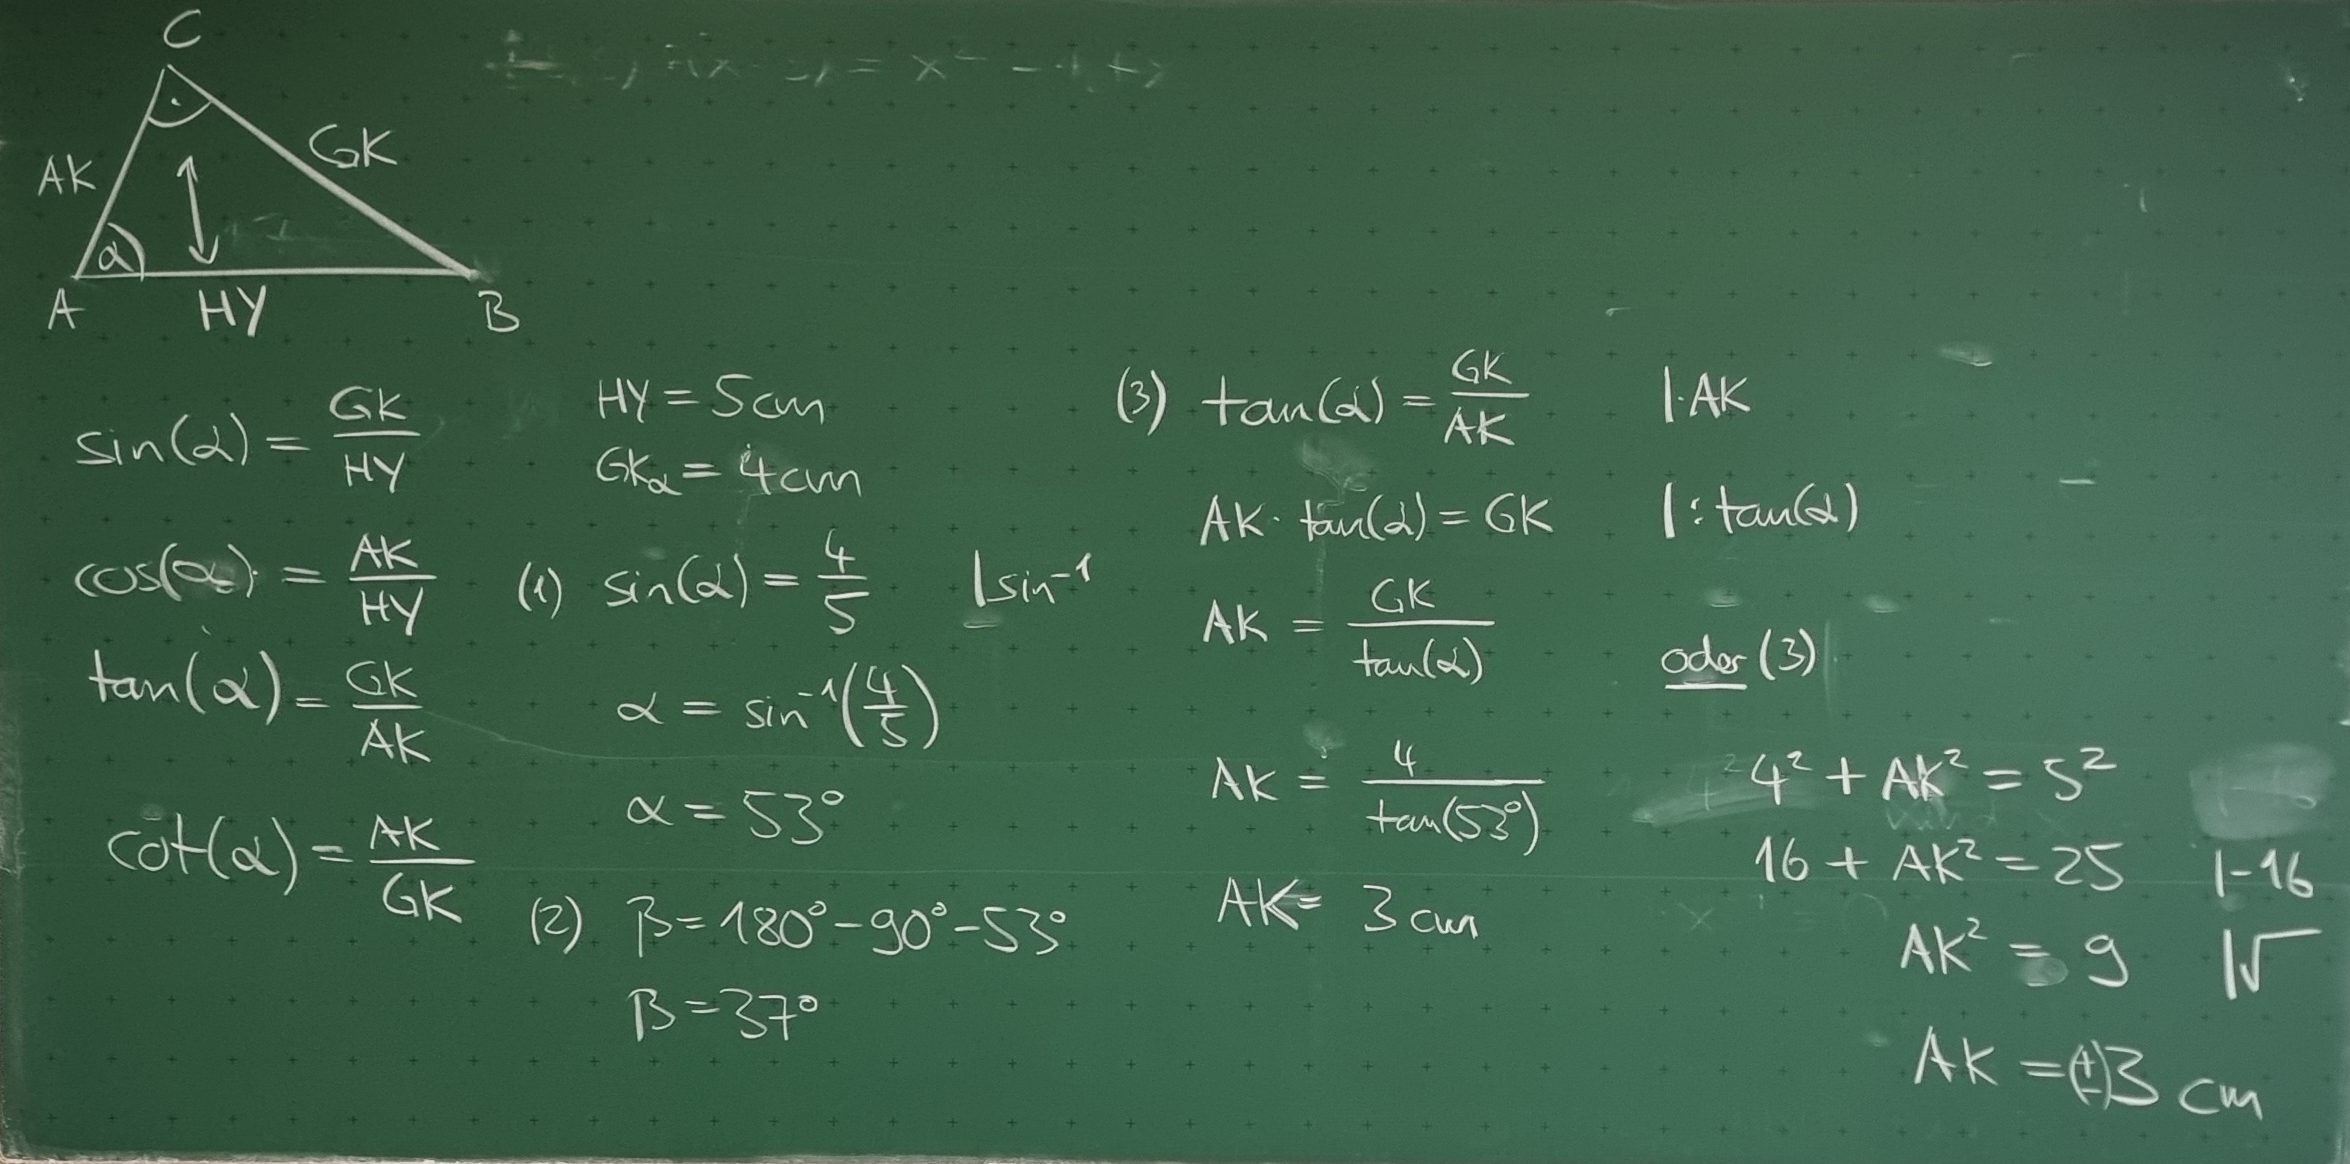 C
AK
GK
α
A
HY
B
sin(α) = GK/HY
cos(α) = AK/HY
tan(α) = GK/AK
cot(α) = AK/GK
HY = 5cm
GKα = 4cm
(1) sin(α) = 4/5 | sin⁻¹
α = sin⁻¹(4/5)
α = 53°
(2) β = 180° - 90° - 53°
β = 37°
(3) tan(α) = GK/AK |·AK
AK · tan(α) = GK |: tan(α)
AK = GK/tan(α)
AK = 4/tan(53°)
AK = 3 cm
oder (3)
4² + AK² = 5²
16 + AK² = 25 |-16
AK² = 9 |√
AK = (±)3 cm